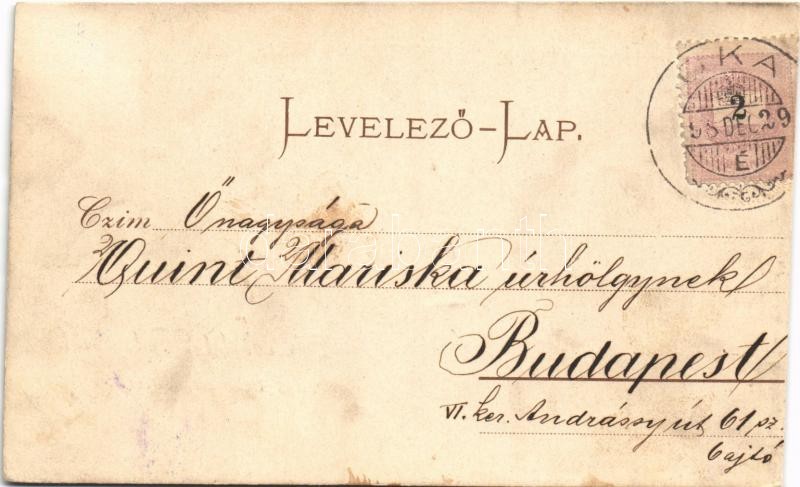 LEVELEZŐ-LAP.
KA
2
98 DEC 29
É
Czim Őnagysága
Mariska úrhölgynek
Budapest
VI. ker. Andrássy út 61 sz.
6 ajtó
darabanth